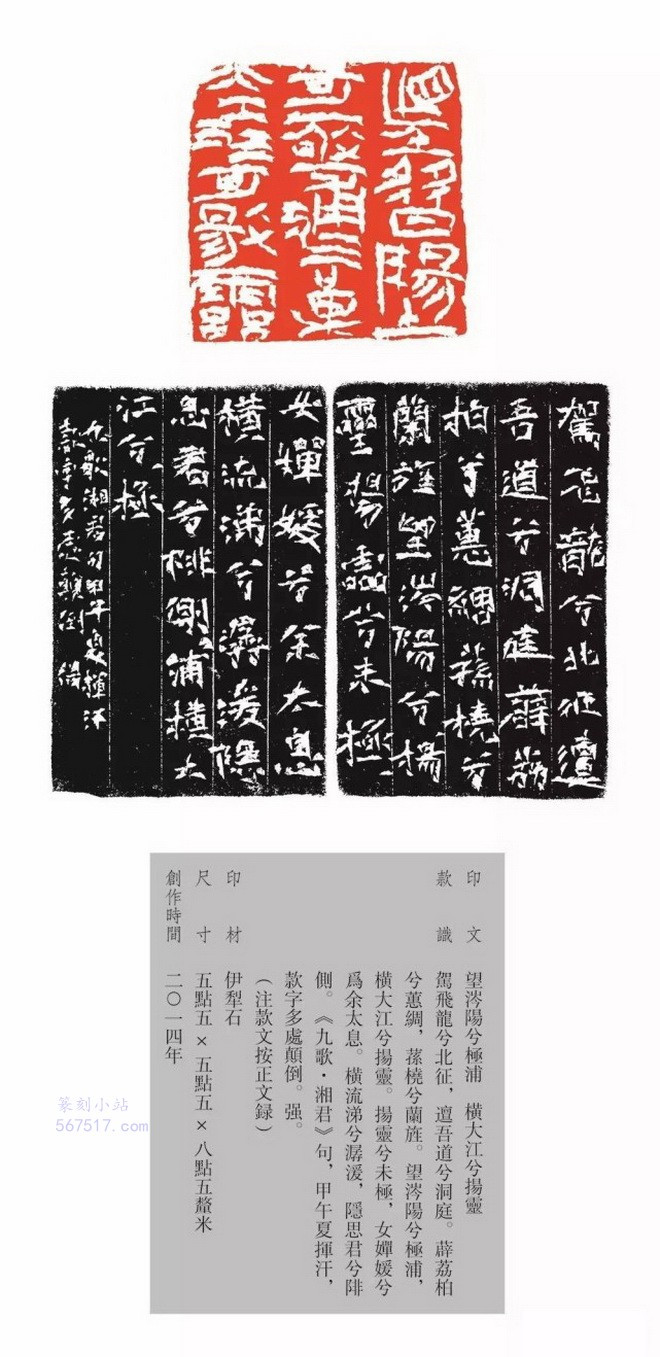 望涔陽
兮極浦橫
大江兮揚靈
駕飛龍兮北征邅
吾道兮洞庭薜荔
拍兮蕙綢蓀橈兮
蘭旌望涔陽兮揚
靈揚靈兮未極
女嬋媛兮余太息
橫流涕兮潺湲隱
思君兮陫側浦橫大
江兮極
九歌湘君句甲午夏揮汗
印文 望涔陽兮極浦 橫大江兮揚靈
款識 駕飛龍兮北征,邅吾道兮洞庭。薜荔柏
兮蕙綢,蓀橈兮蘭旌。望涔陽兮極浦,
橫大江兮揚靈。揚靈兮未極,女嬋媛兮
爲余太息。橫流涕兮潺湲,隱思君兮陫
側。《九歌·湘君》句,甲午夏揮汗,
款字多處顛倒。强。
(注款文按正文録)
印材 伊犁石
尺寸 五點五×五點五×八點五釐米
創作時間 二〇一四年
篆刻小站
567517.com